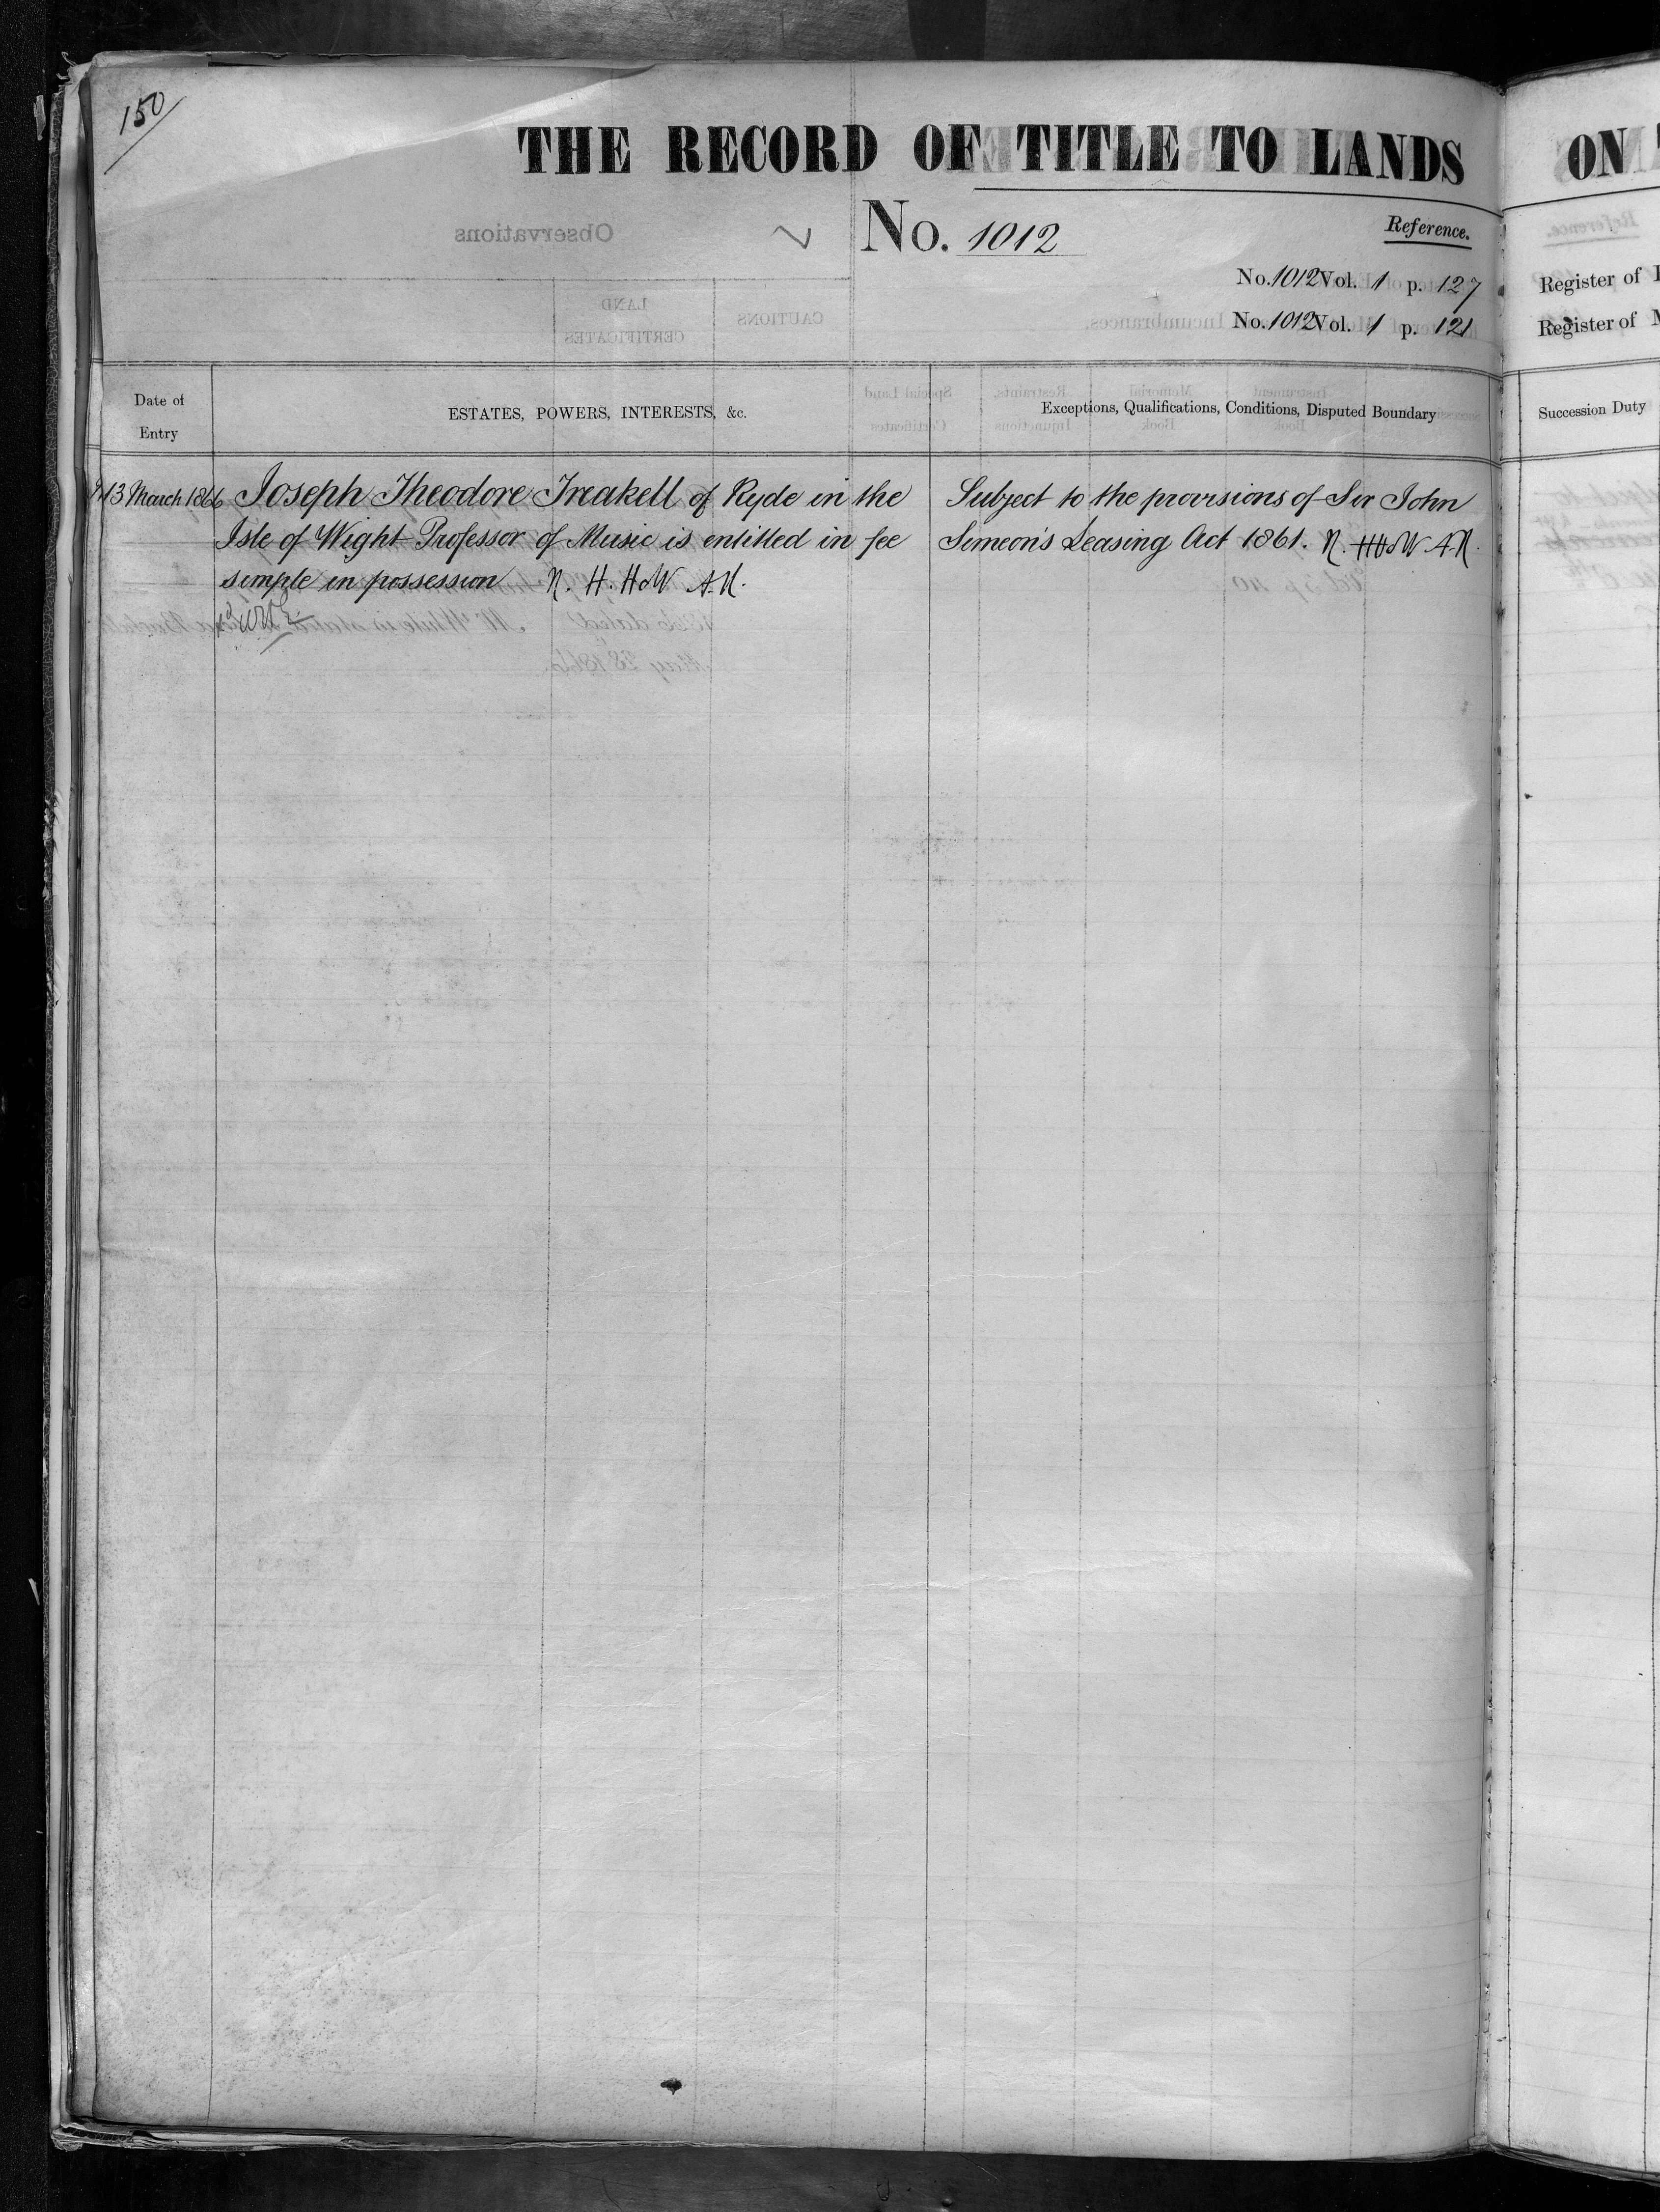 150
THE RECORD OF TITLE TO LANDS
No. 1012
Reference.
No. 1012 Vol. 1 p. 127
No. 1012 Vol. 1 p. 121
Date of
Entry
ESTATES, POWERS, INTERESTS, &c.
Exceptions, Qualifications, Conditions, Disputed Boundary
13 March 1866 Joseph Theodore Treakell of Ryde in the
Isle of Wight Professor of Music is entitled in fee
simple in possession N. H. HoW A.N.
Subject to the provisions of Sir John
Simeon's Leasing Act 1861. N. HHoW A.N.
ON
Register of
Register of
Succession Duty
Observations
LAND
CERTIFICATES
CAUTIONS
Incumbrances.
Special Land
Certificates
Restraints,
Injunctions
Memorial
Book
Instrument
Book